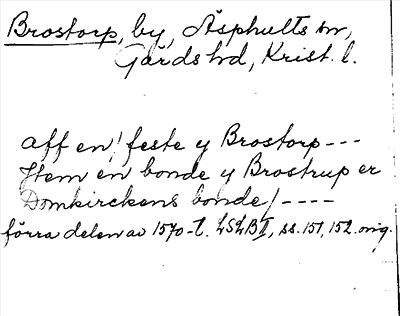 Brostorp, by, Äsphults sn,
Gärds hd, Krist. l.
aff en! feste y Brostorp ---
Item en bonde y Brostrup er
Domkirckens bonde/ ----
förra delen av 1570-t. LSLB II, ss. 151, 152. orig.